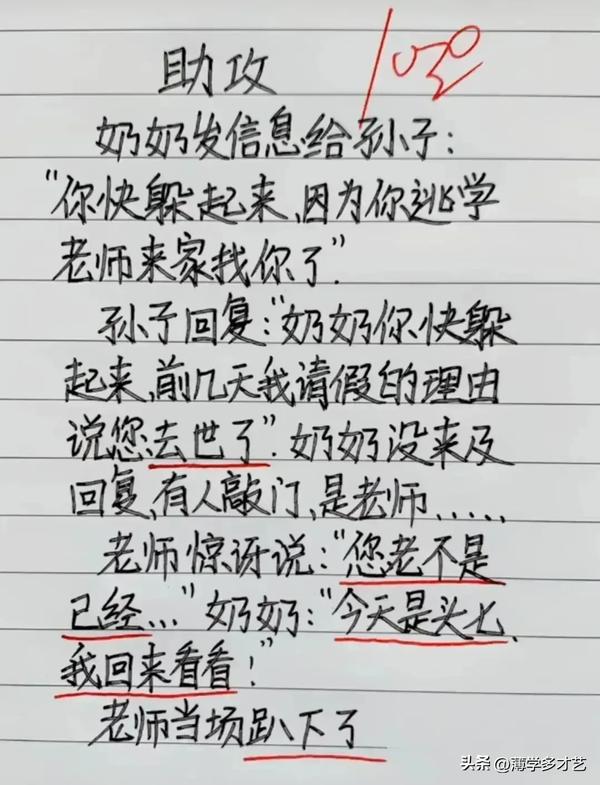 助攻
100
奶奶发信息给孙子：
“你快躲起来,因为你逃学
老师来家找你了”.
孙子回复:“奶奶你快躲
起来,前几天我请假的理由
说您去世了”.奶奶没来及
回复,有人敲门,是老师......
老师惊讶说:“您老不是
已经...”奶奶:“今天是头七,
我回来看看!”
老师当场趴下了
头条 @薄学多才艺